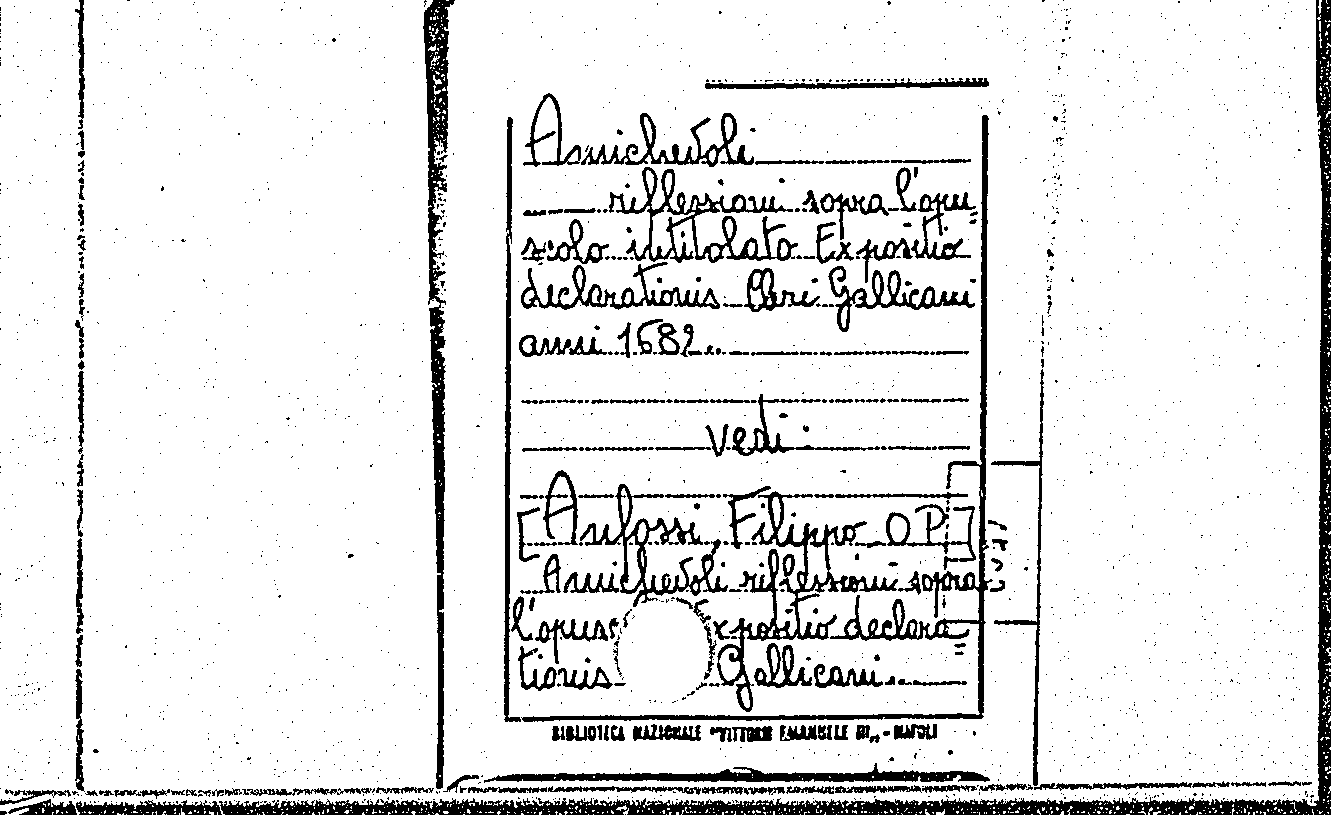 Amichevoli
riflessioni sopra l'opu=
scolo intitolato Expositio
declarationis Cleri Gallicani
anni 1682..
vedi:
[Anfossi, Filippo O P]
Amichevoli riflessioni sopra
l'opusc xpositio declara=
tionis Gallicani..
BIBLIOTECA NAZIONALE "VITTORIO EMANUELE III" - NAPOLI